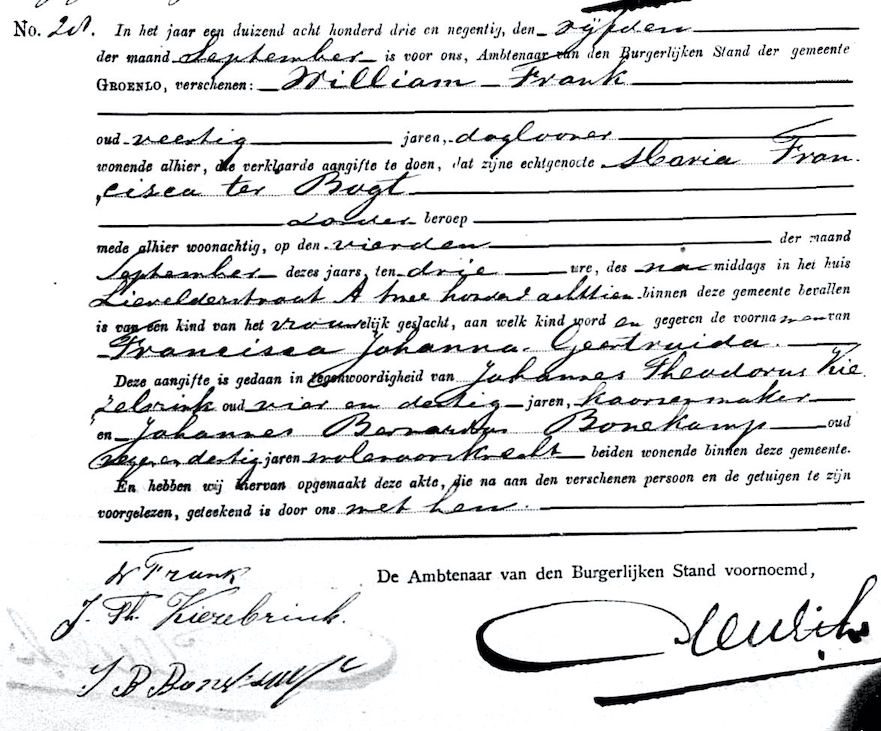 No. 28. In het jaar een duizend acht honderd drie en negentig, den vijfden
der maand September is voor ons, Ambtenaar van den Burgerlijken Stand der gemeente
GROENLO, verschenen: William Frank
oud veertig jaren, daglooner
wonende alhier, die verklaarde aangifte te doen, dat zijne echtgenoote Maria Fran
cisca ter Bogt
zonder beroep
mede alhier woonachtig, op den vierden der maand
September dezes jaars, ten drie ure, des na middags in het huis
Lievelderstraat A twee honderd achttien binnen deze gemeente bevallen
is van een kind van het vrouwelijk geslacht, aan welk kind word en gegeven de voornamen van
Francisca Johanna Geertruida.
Deze aangifte is gedaan in tegenwoordigheid van Johannes Theodorus Kie
zebrink oud vier en dertig jaren, kaarsenmaker
en Johannes Bernardus Bonekamp oud
negen en dertig jaren molenaarsknecht beiden wonende binnen deze gemeente.
En hebben wij hiervan opgemaakt deze akte, die na aan den verschenen persoon en de getuigen te zijn
voorgelezen, geteekend is door ons met hen.
W Frank
De Ambtenaar van den Burgerlijken Stand voornoemd,
J. Th. Kiezebrink.
J B Bonekamp